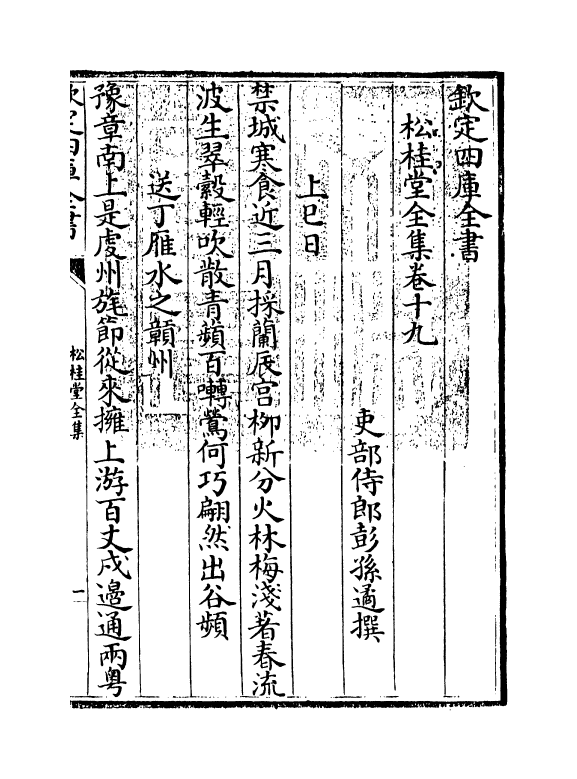 欽定四庫全書
松桂堂全集卷十九
吏部侍郎彭孫遹撰
上巳日
禁城寒食近三月採蘭辰宫柳新分火林梅淺著春流
波生翠縠輕吹散青蘋百囀鶯何巧翩然出谷頻
送丁雁水之贛州
豫章南上是虔州旄節從來擁上游百丈戍邉通兩粤
欽定四庫全書
松桂堂全集
一